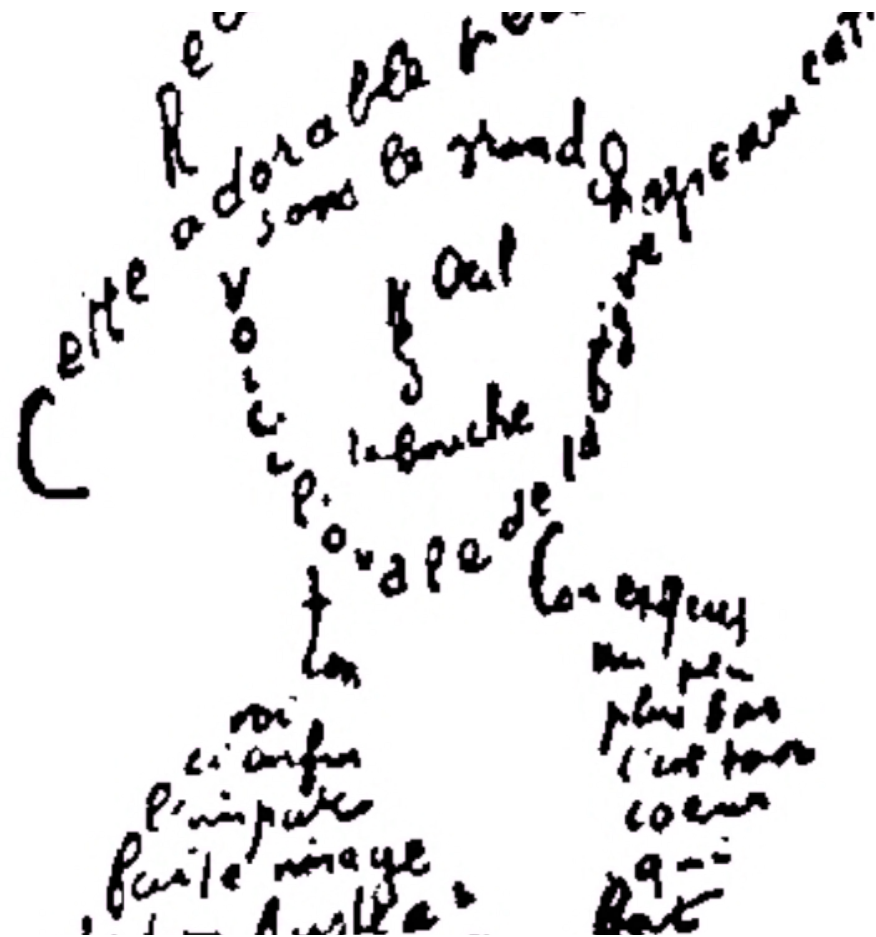 Reco
Cette adorable per
sous le grand chapeau can
Oeil
Nez
la bouche
Voici l'ovale de ta figure
Ton
Cou exquis
voi
ci enfin
l'imparfaite
image
un peu
plus bas
c'est ton
coeur
qui
bat